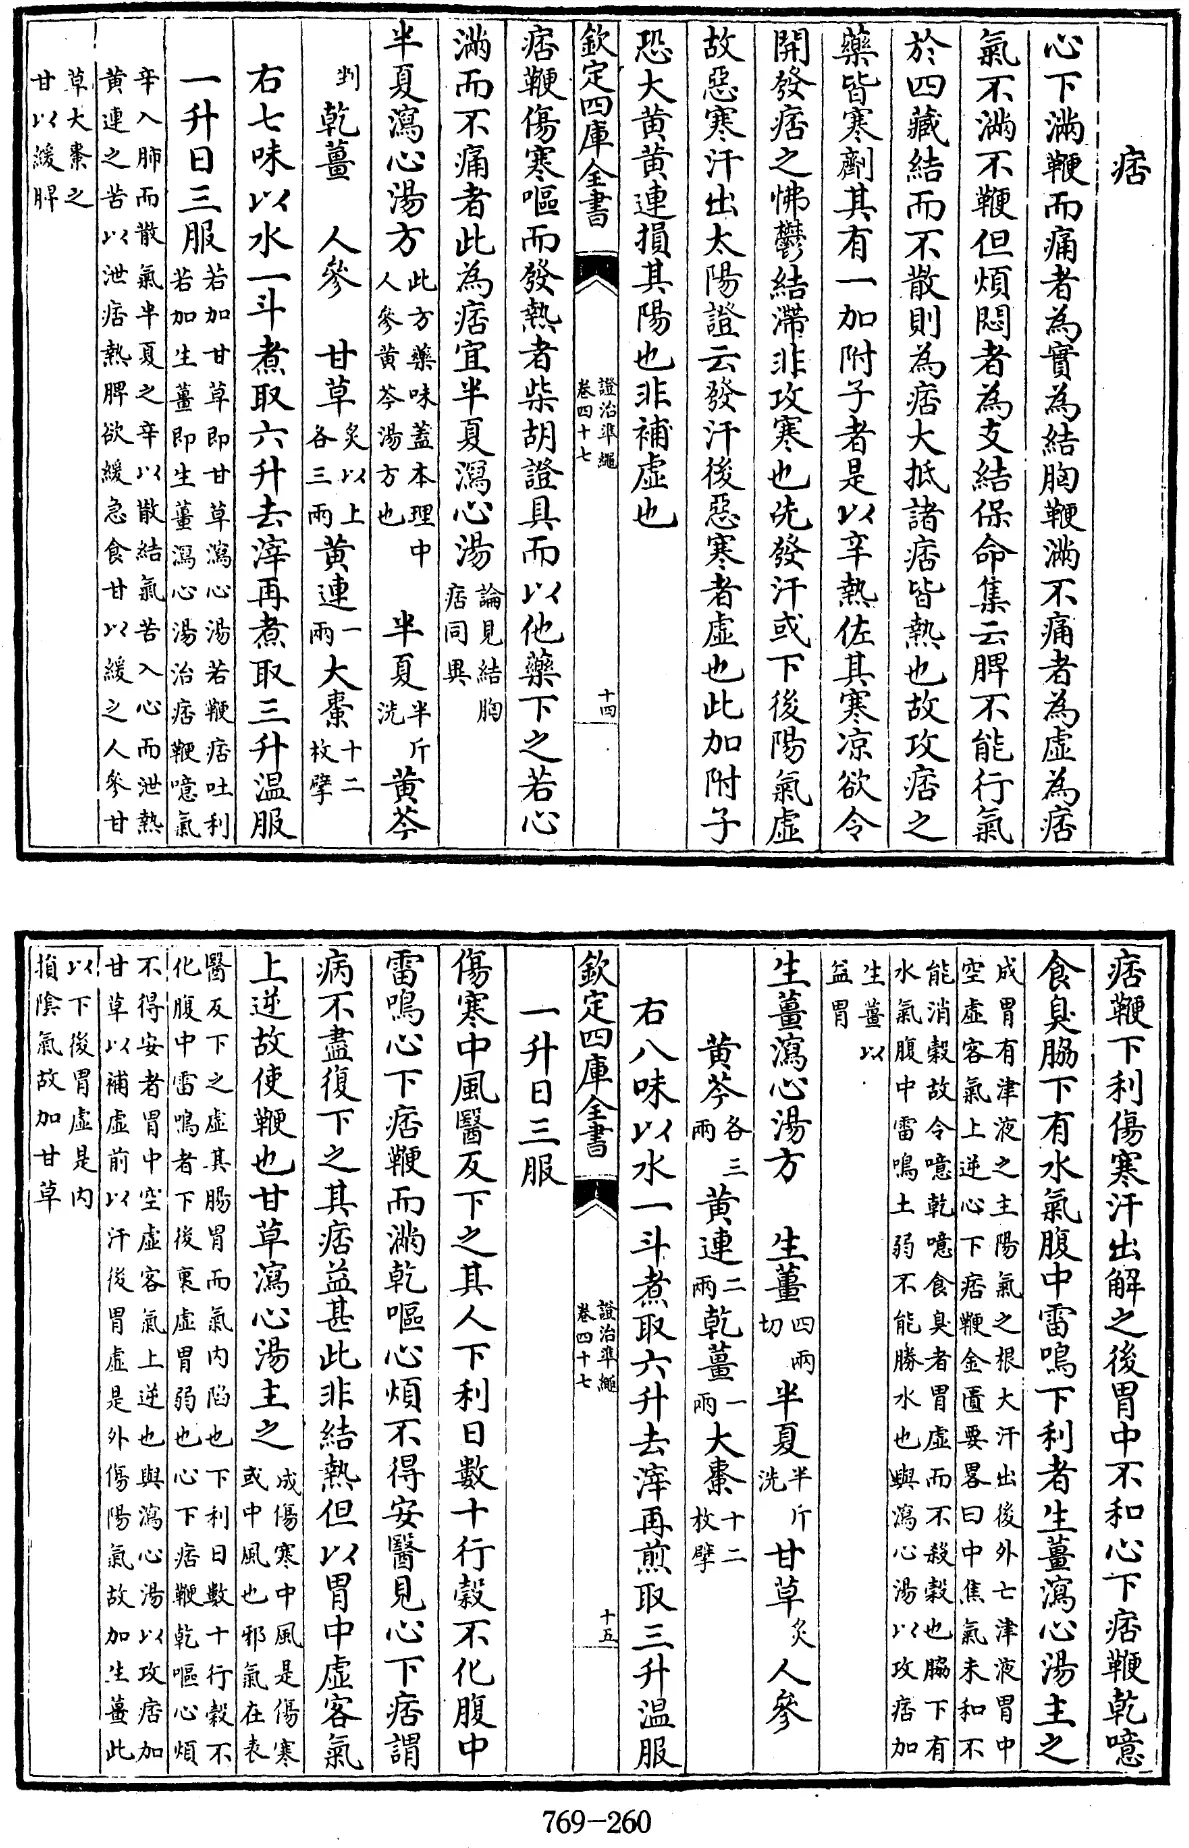 痞
心下滿鞕而痛者為實為結胸鞕滿不痛者為虛為痞
氣不滿不鞕但煩悶者為支結保命集云脾不能行氣
於四藏結而不散則為痞大抵諸痞皆熱也故攻痞之
藥皆寒劑其有一加附子者是以辛熱佐其寒凉欲令
開發痞之怫鬱結滯非攻寒也先發汗或下後陽氣虛
故惡寒汗出太陽證云發汗後惡寒者虛也此加附子
恐大黃黃連損其陽也非補虛也
欽定四庫全書
證治準繩
卷四十七
十四
痞鞕傷寒嘔而發熱者柴胡證具而以他藥下之若心
滿而不痛者此為痞宜半夏瀉心湯論見結胸
痞同異
半夏瀉心湯方此方藥味蓋本理中
人參黃芩湯方也
半夏半斤
洗
黃芩
剉
乾薑 人參 甘草炙以上
各三兩
黃連一
兩
大棗十二
枚擘
右七味以水一斗煮取六升去滓再煮取三升温服
一升日三服若加甘草即甘草瀉心湯若鞕痞吐利
若加生薑即生薑瀉心湯治痞鞕噫氣
辛入肺而散氣半夏之辛以散結氣苦入心而泄熱
黃連之苦以泄痞熱脾欲緩急食甘以緩之人參甘
草大棗之
甘以緩脾
痞鞕下利傷寒汗出解之後胃中不和心下痞鞕乾噫
食臭脇下有水氣腹中雷鳴下利者生薑瀉心湯主之
成胃有津液之主陽氣之根大汗出後外亡津液胃中
空虛客氣上逆心下痞鞕金匱要畧曰中焦氣未和不
能消穀故令噫乾噫食臭者胃虛而不殺穀也脇下有
水氣腹中雷鳴土弱不能勝水也與瀉心湯以攻痞加
生薑以
益胃
生薑瀉心湯方 生薑四兩
切
半夏半斤
洗
甘草炙 人參
黃芩各三
兩
黃連二
兩
乾薑一
兩
大棗十二
枚擘
右八味以水一斗煮取六升去滓再煎取三升温服
一升日三服
欽定四庫全書
證治準繩
卷四十七
十五
傷寒中風醫反下之其人下利日數十行穀不化腹中
雷鳴心下痞鞕而滿乾嘔心煩不得安醫見心下痞謂
病不盡復下之其痞益甚此非結熱但以胃中虛客氣
上逆故使鞕也甘草瀉心湯主之成傷寒中風是傷寒
或中風也邪氣在表
醫反下之虛其腸胃而氣内陷也下利日數十行穀不
化腹中雷鳴者下後裏虛胃弱也心下痞鞕乾嘔心煩
不得安者胃中空虛客氣上逆也與瀉心湯以攻痞加
甘草以補虛前以汗後胃虛是外傷陽氣故加生薑此
以下後胃虛是内
損陰氣故加甘草
769-260